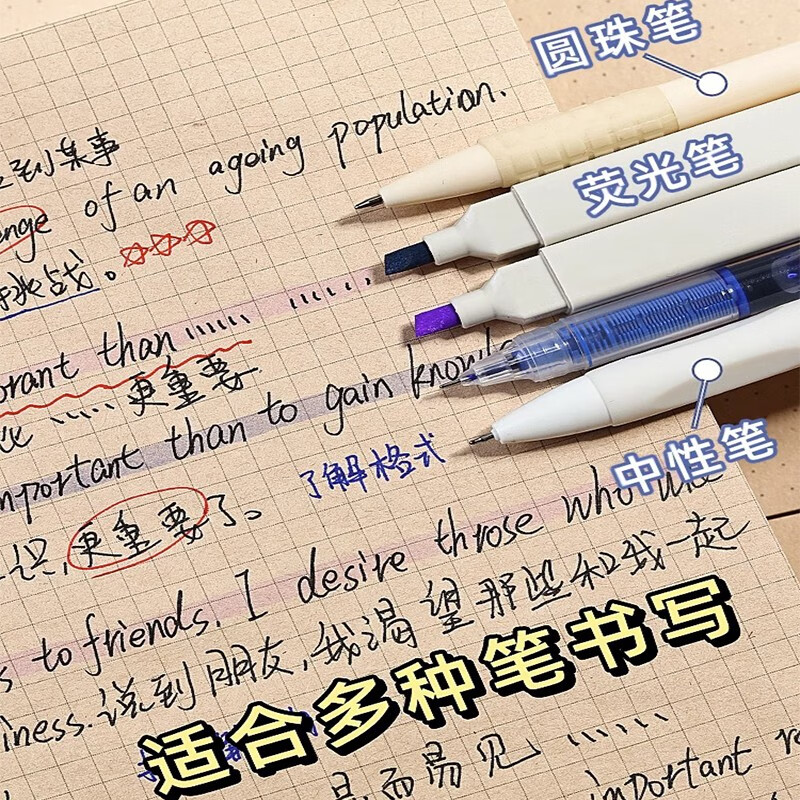 圆珠笔
population.
到某事
of an ageing
荧光笔
挑战。
than ......
......
更重要
important than to gain
中性笔
了解格式
识,更重要了。
to friends. I desire throse who
iness.说到朋友,我渴望那些和我一起
适合多种笔书写
易见 ......
important